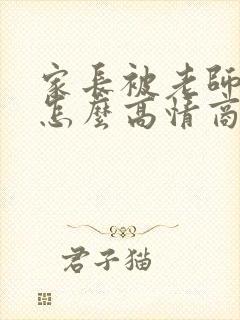 家長被老師
怎麼高情商
君子猫